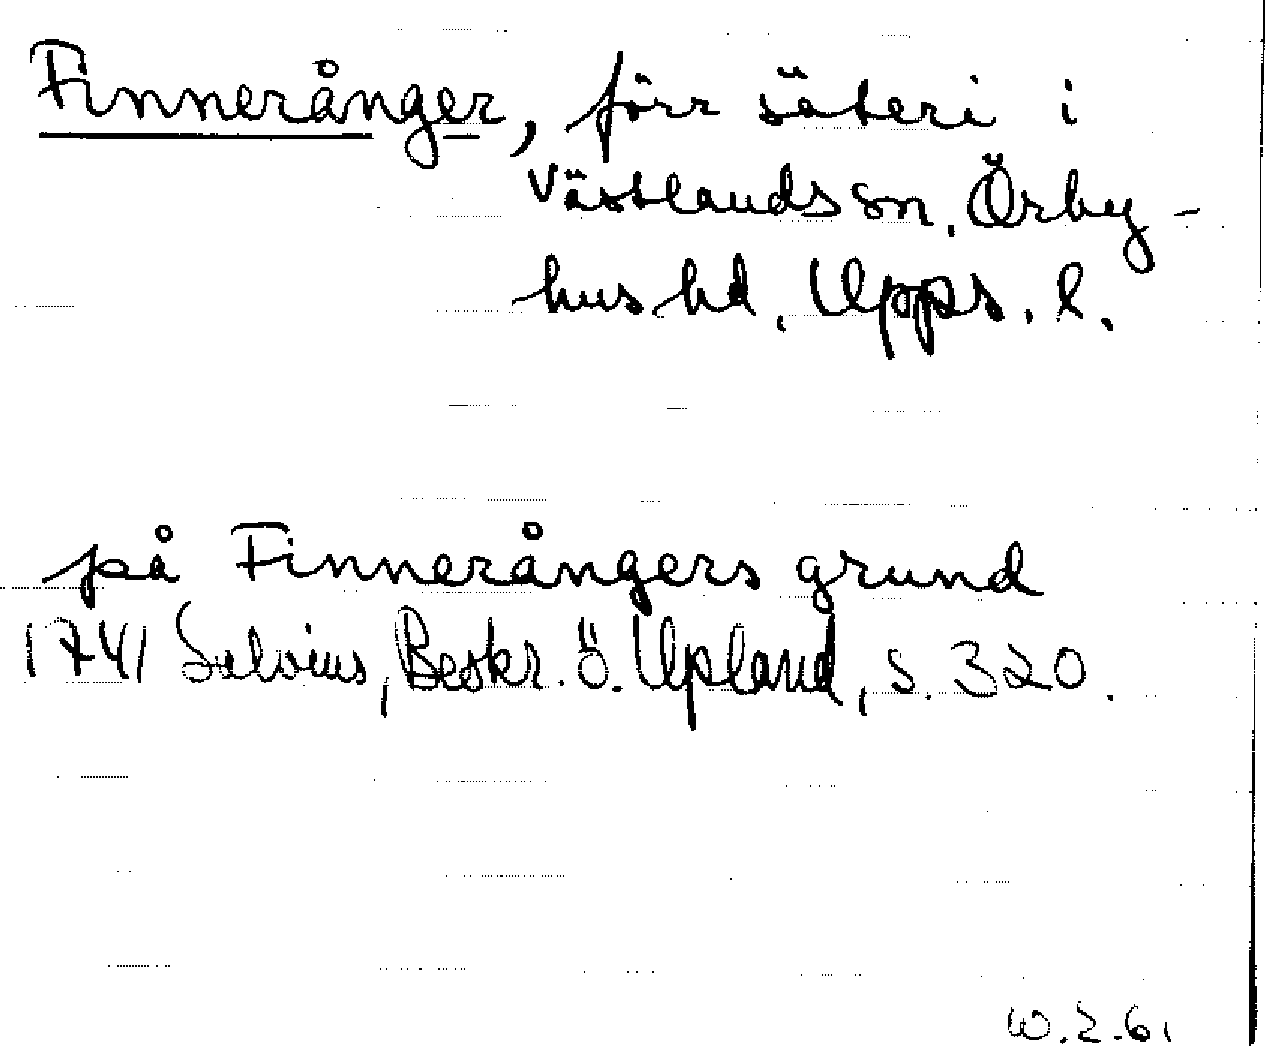 Finnerånger, förr säteri i
Västlands sn, Örby-
hus hd, Upps. l.
på Finnerångers grund
1741 Salvius, Beskr. ö. Upland, s. 320.
W. Z. 61